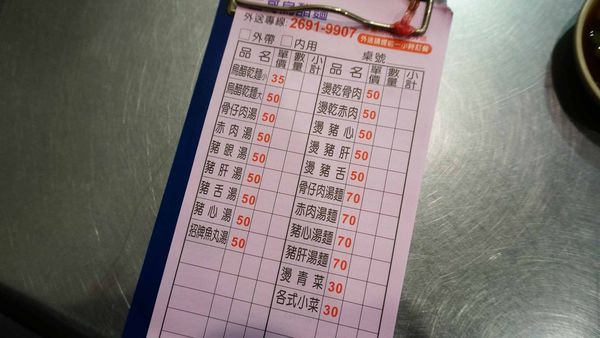 外送專線: 2691-9907
外送請提前一小時訂餐
□外帶 □內用 桌號
品名 單價 數量 小計 品名 單價 數量 小計
烏醋乾麵小 35
烏醋乾麵大 50
骨仔肉湯 50
赤肉湯 50
豬眼湯 50
豬肝湯 50
豬舌湯 50
豬心湯 50
招牌魚丸湯 50
燙乾骨肉 50
燙乾赤肉 50
燙豬心 50
燙豬肝 50
燙豬舌 50
骨仔肉湯麵 70
赤肉湯麵 70
豬心湯麵 70
豬肝湯麵 70
燙青菜 30
各式小菜 30